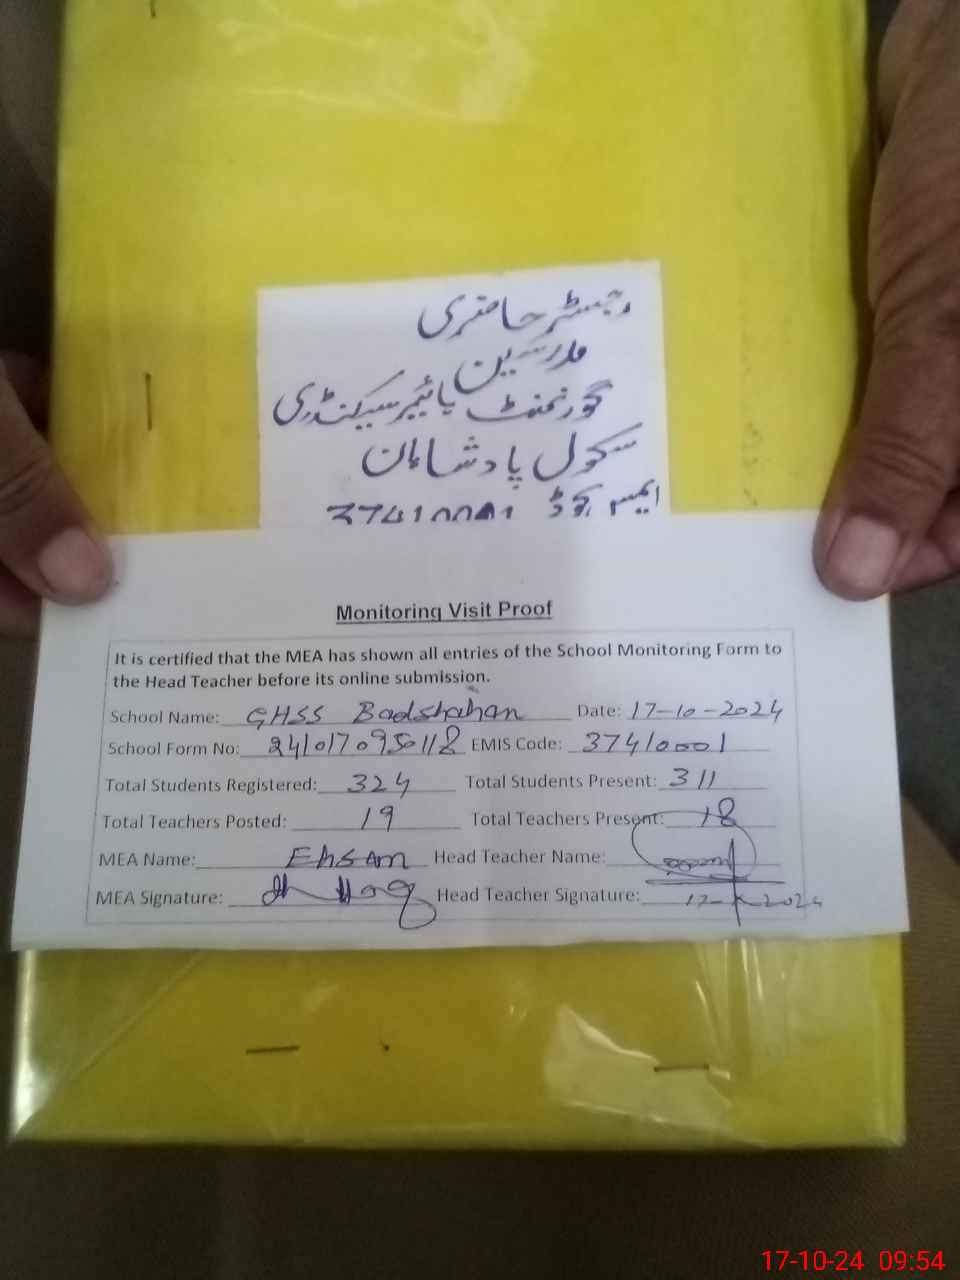 رجسٹر حاضری
مدرسین
گورنمنٹ ہائیر سیکنڈری
سکول پادشاہان
ایمس کوڈ 37410001
Monitoring Visit Proof
It is certified that the MEA has shown all entries of the School Monitoring Form to
the Head Teacher before its online submission.
School Name: GHSS Badshahan Date: 17-10-2024
School Form No: 241017095118 EMIS Code: 37410001
Total Students Registered: 324 Total Students Present: 311
Total Teachers Posted: 19 Total Teachers Present: 18
MEA Name: Ehsan Head Teacher Name:
MEA Signature: Head Teacher Signature: 17-X-2024
17-10-24 09:54